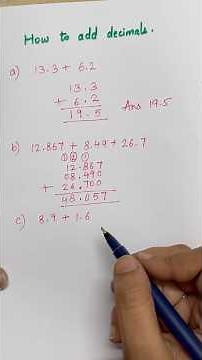 How to add decimals.
a) 13.3 + 6.2
13.3
+ 6.2
19.5
Ans 19.5
b) 12.867 + 8.49 + 26.7
① ② ①
12.867
08.490
+ 26.700
48.057
c) 8.9 + 1.6